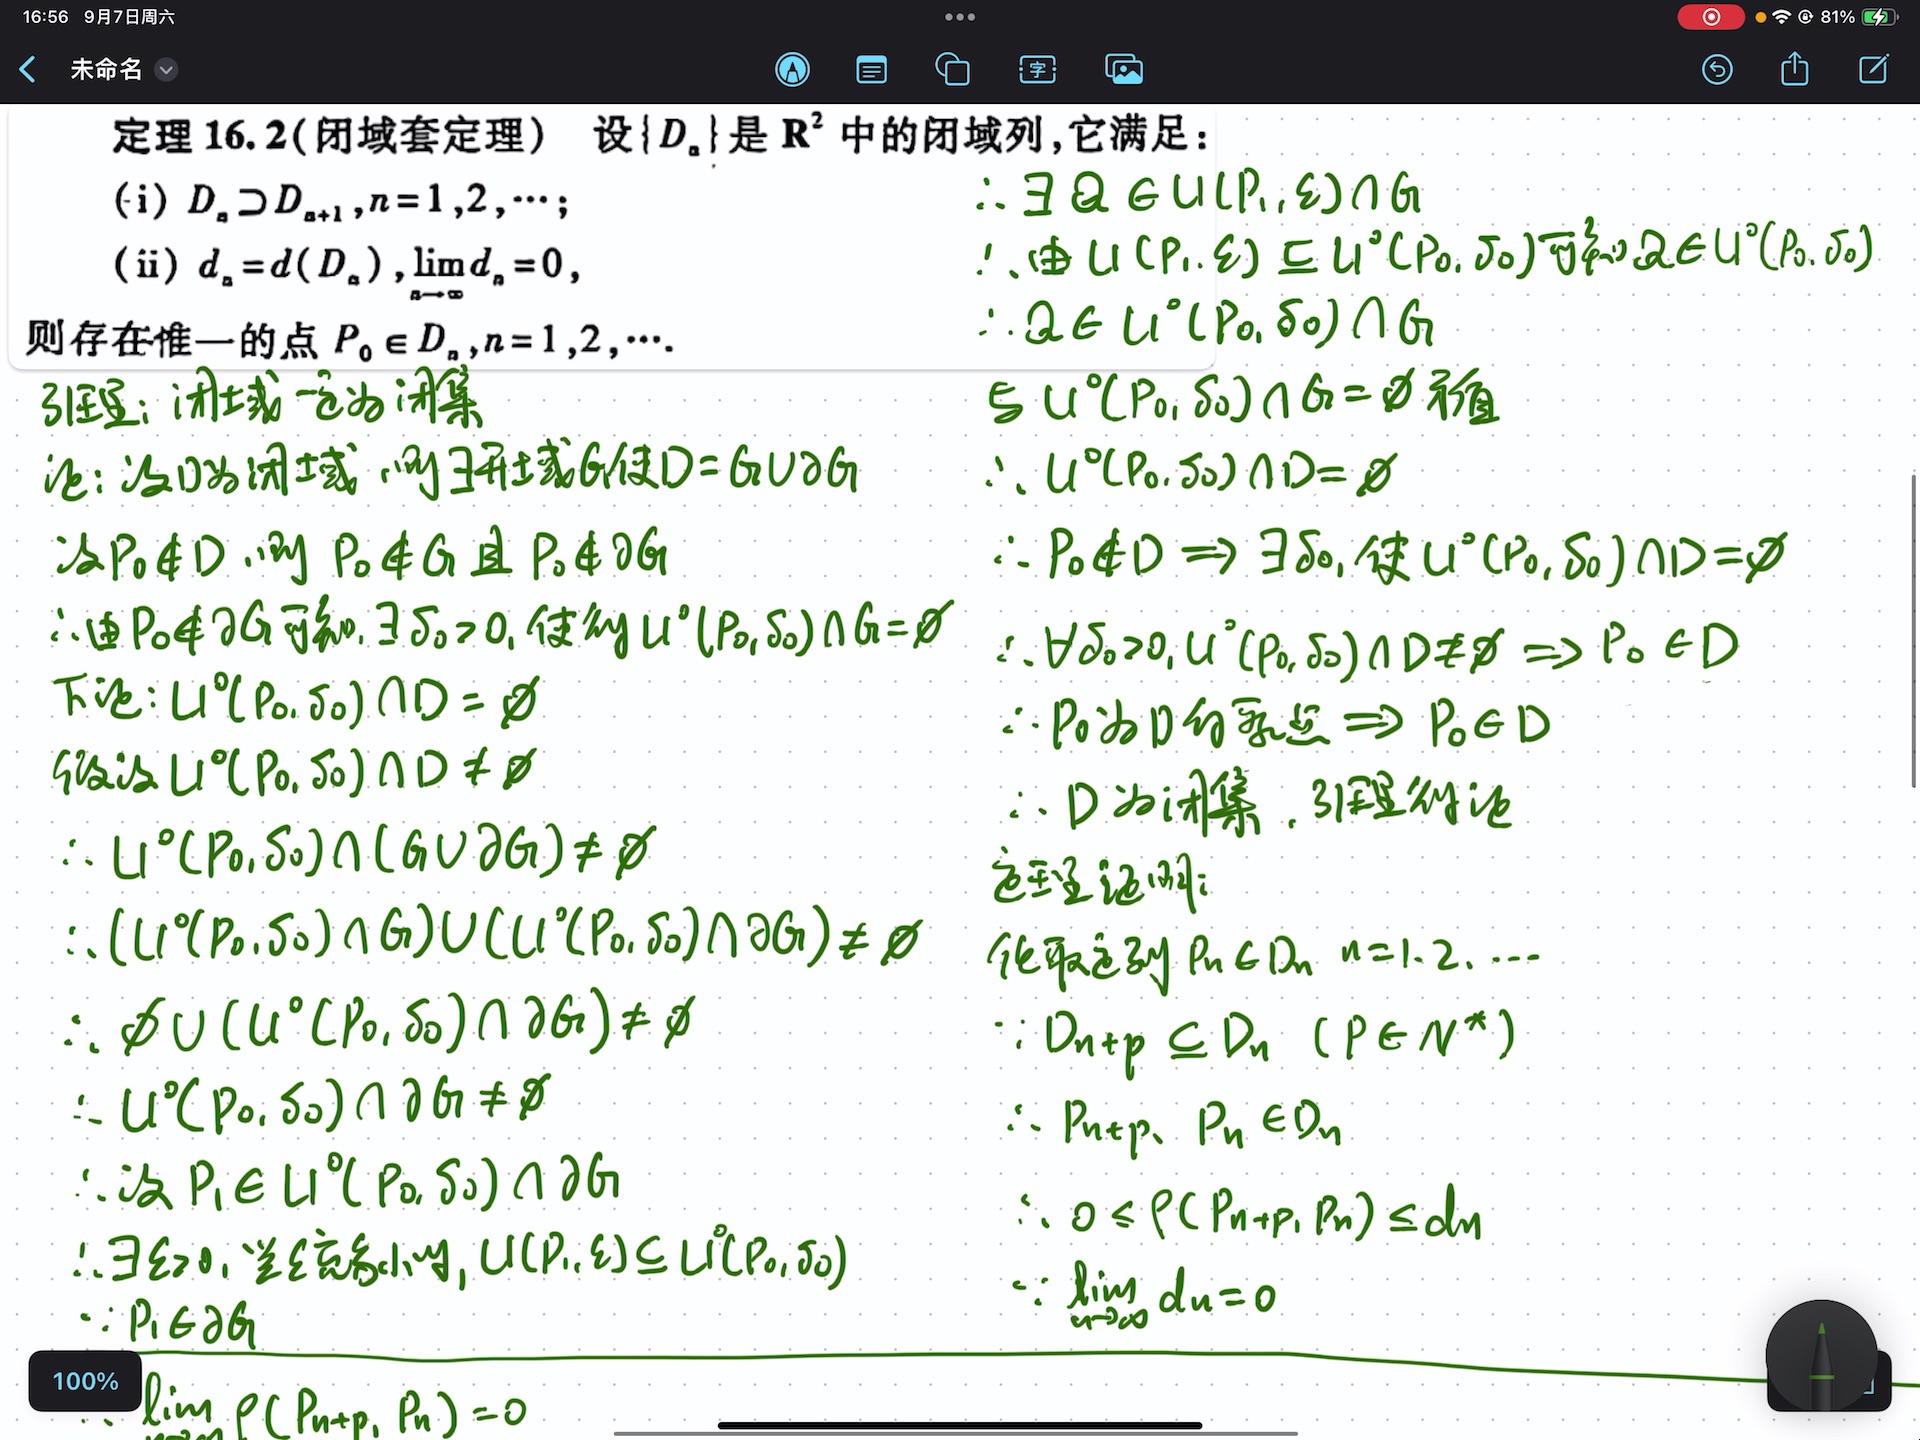 16:56 9月7日周六
81%
未命名
定理 16.2(闭域套定理) 设{Dₙ}是 R² 中的闭域列,它满足:
(i) Dₙ⊃Dₙ₊₁,n=1,2,…;
(ii) dₙ=d(Dₙ),lim dₙ=0,
n→∞
则存在惟一的点 P₀∈Dₙ,n=1,2,….
引理: 闭域一定为闭集
证: 设D为闭域,则∃开域G使D=G∪∂G
设P₀∉D,则 P₀∉G 且 P₀∉∂G
∴由P₀∉∂G可知,∃δ₀>0,使得U°(P₀,δ₀)∩G=∅
下证: U°(P₀,δ₀)∩D=∅
假设U°(P₀,δ₀)∩D≠∅
∴U°(P₀,δ₀)∩(G∪∂G)≠∅
∴(U°(P₀,δ₀)∩G)∪(U°(P₀,δ₀)∩∂G)≠∅
∴∅∪(U°(P₀,δ₀)∩∂G)≠∅
∴U°(P₀,δ₀)∩∂G≠∅
∴设P₁∈U°(P₀,δ₀)∩∂G
∴∃ε>0,当ε充分小时,U(P₁,ε)⊆U°(P₀,δ₀)
∵P₁∈∂G
∴∃Q∈U(P₁,ε)∩G
∴由U(P₁,ε)⊆U°(P₀,δ₀)可知Q∈U°(P₀,δ₀)
∴Q∈U°(P₀,δ₀)∩G
与U°(P₀,δ₀)∩G=∅矛盾
∴U°(P₀,δ₀)∩D=∅
∴P₀∉D⇒∃δ₀,使U°(P₀,δ₀)∩D=∅
∴∀δ₀>0,U°(P₀,δ₀)∩D≠∅⇒P₀∈D
∴P₀为D的聚点⇒P₀∈D
∴D为闭集,引理得证
定理证明:
任取点列Pₙ∈Dₙ n=1,2,…
∵Dₙ₊ₚ⊆Dₙ (P∈N*)
∴Pₙ₊ₚ、Pₙ∈Dₙ
∴0≤ρ(Pₙ₊ₚ,Pₙ)≤dₙ
∵lim dₙ=0
n→∞
100%
lim ρ(Pₙ₊ₚ,Pₙ)=0